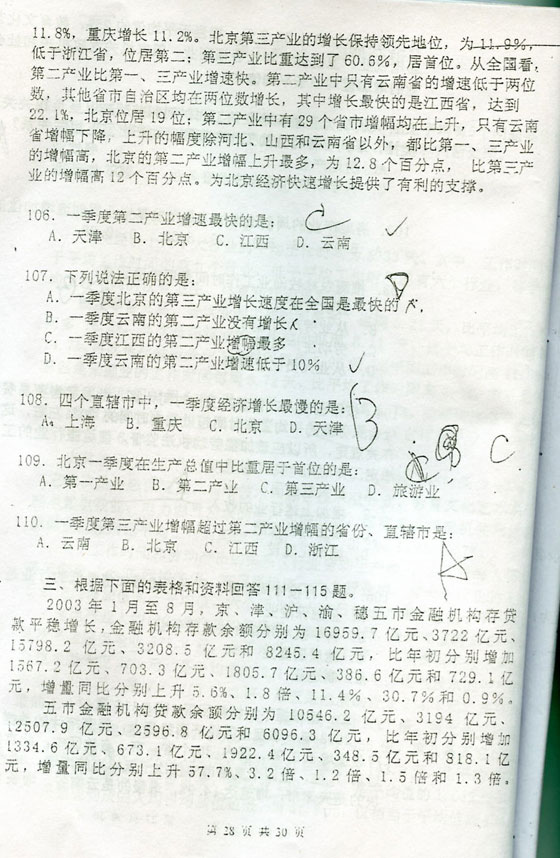 11.8%，重庆增长11.2%。北京第三产业的增长保持领先地位，为11.9%，
低于浙江省，位居第二；第三产业比重达到了60.6%，居首位。从全国看，
第二产业比第一、三产业增速快。第二产业中只有云南省的增速低于两位
数，其他省市自治区均在两位数增长，其中增长最快的是江西省，达到
22.1%，北京位居19位；第二产业中有29个省市增幅均在上升，只有云南
省增幅下降，上升的幅度除河北、山西和云南省以外，都比第一、三产业
的增幅高，北京的第二产业增幅上升最多，为12.8个百分点， 比第三产
业的增幅高12个百分点。为北京经济快速增长提供了有利的支撑。
106．一季度第二产业增速最快的是： C
A．天津 B．北京 C．江西 D．云南
107．下列说法正确的是： D
A．一季度北京的第三产业增长速度在全国是最快的
B．一季度云南的第二产业没有增长
C．一季度江西的第二产业增幅最多
D．一季度云南的第二产业增速低于10%
108．四个直辖市中，一季度经济增长最慢的是： B
A．上海 B．重庆 C．北京 D．天津
109．北京一季度在生产总值中比重居于首位的是： C
A．第一产业 B．第二产业 C．第三产业 D．旅游业
110．一季度第三产业增幅超过第二产业增幅的省份、直辖市是： A
A．云南 B．北京 C．江西 D．浙江
三、根据下面的表格和资料回答111－115题。
2003年1月至8月，京、津、沪、渝、穗五市金融机构存贷
款平稳增长，金融机构存款余额分别为16959.7亿元、3722亿元、
15798.2亿元、3208.5亿元和8245.4亿元，比年初分别增加
1567.2亿元、703.3亿元、1805.7亿元、386.6亿元和729.1亿
元，增量同比分别上升5.6%、1.8倍、11.4%、30.7%和0.9%。
五市金融机构贷款余额分别为10546.2亿元、3194亿元、
12507.9亿元、2596.8亿元和6096.3亿元，比年初分别增加
1334.6亿元、673.1亿元、1922.4亿元、348.5亿元和818.1亿
元，增量同比分别上升57.7%、3.2倍、1.2倍、1.5倍和1.3倍。
第28页共30页